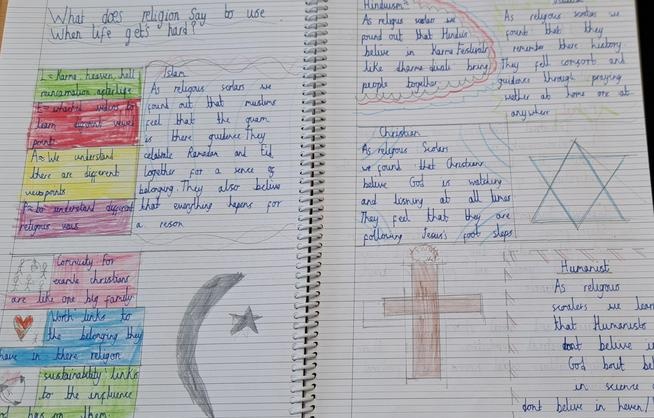 What does religion say to use
When life gets hard?
L = Karma, heaven, hell
reincarnation afterlife
learn different views
point
A = We understand
there are different
viewpoints
P = to understand different
religious ways
Islam
As religious scolars we
found out that muslims
feel that the quran
is there guidence They
celabrate Ramadan and Eid
together for a sence of
belonging. They also belive
that everything hapens for
a reson
Comunity for
examle christians
are like one big family
Worth links to
the belonging they
have in there religon
sustainability links
to the influence
god has on them
Hinduism
As religous scolar we
found out that Hindus
believe in Karma Festivals
like dharma diwali bring
people together
As religous scolars we
found that they
remember there history
They fell comfort and
guidance through praying
wether at home ore at
anywhere
Christian
As religous Scolars
we found that Christians
believe God is watching
and lisning at all times
They feel that they are
following Jesus's foot steps
Humanist
As religious
scolers we lear
that Humanists
dont believe i
God bout bel
in science
dont belive in heven/